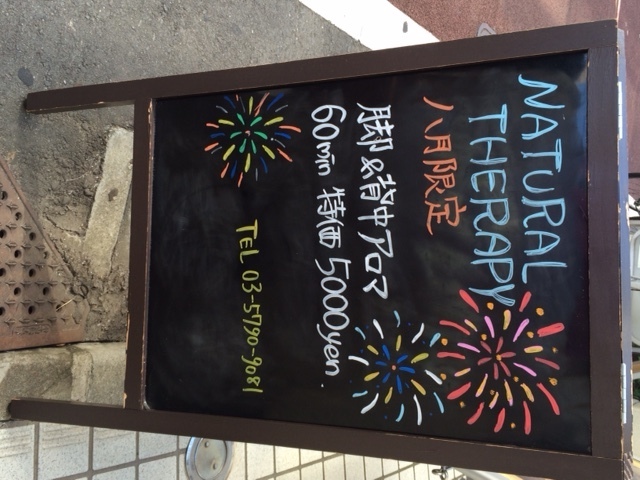 NATURAL
THERAPY
八月限定
脚&背中アロマ
60min 特価 5000yen.
TEL 03-5790-9081